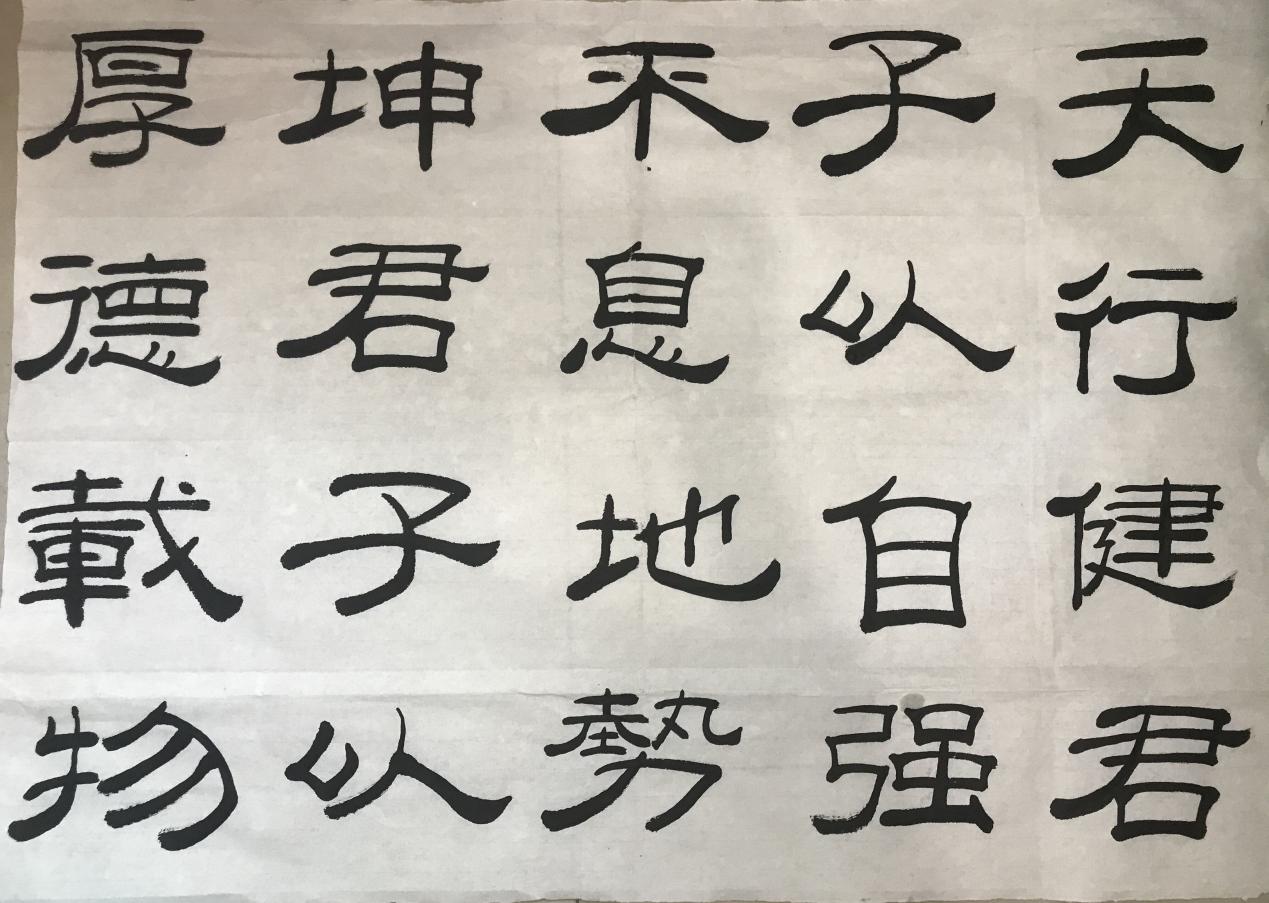 天行健君
子以自强
不息地势
坤君子以
厚德載物